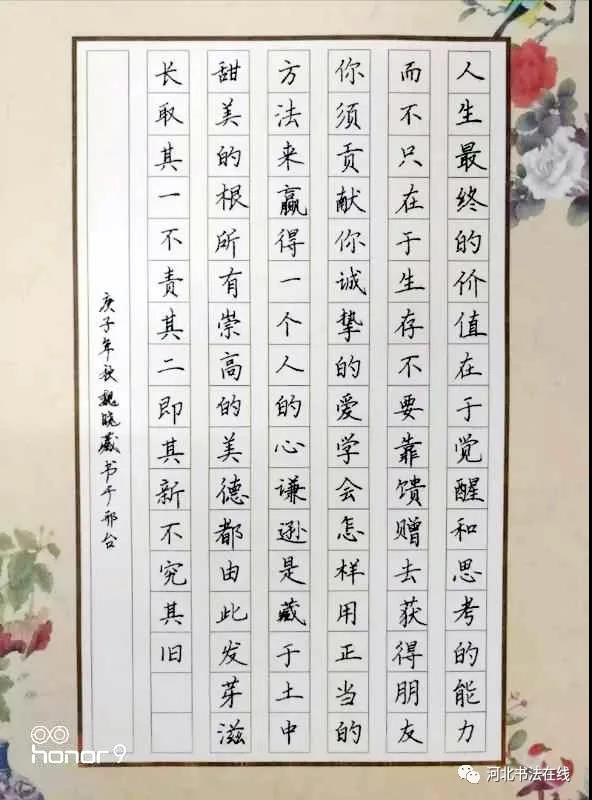 人生最终的价值在于觉醒和思考的能力
而不只在于生存不要靠馈赠去获得朋友
你须贡献你诚挚的爱学会怎样用正当的
方法来赢得一个人的心谦逊是藏于土中
甜美的根所有崇高的美德都由此发芽滋
长取其一不责其二即其新不究其旧
庚子年秋魏晓葳书于邢台
honor 9
河北书法在线